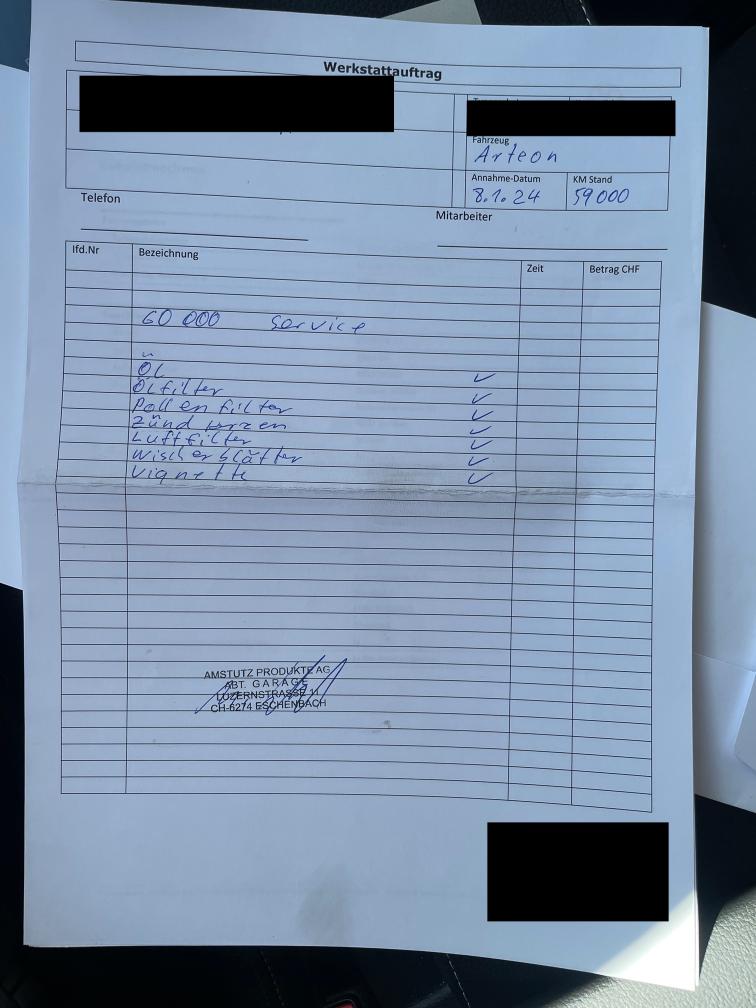 Werkstattauftrag
Fahrzeug
Arteon
Annahme-Datum KM Stand
8.1.24 59000
Telefon
Mitarbeiter
lfd.Nr Bezeichnung Zeit Betrag CHF
60 000 Service
Öl ✓
Ölfilter ✓
Pollenfilter ✓
Zündkerzen ✓
Luftfilter ✓
Wischerblätter ✓
Vignette ✓
AMSTUTZ PRODUKTE AG
ABT. GARAGE
LUZERNSTRASSE 11
CH-6274 ESCHENBACH